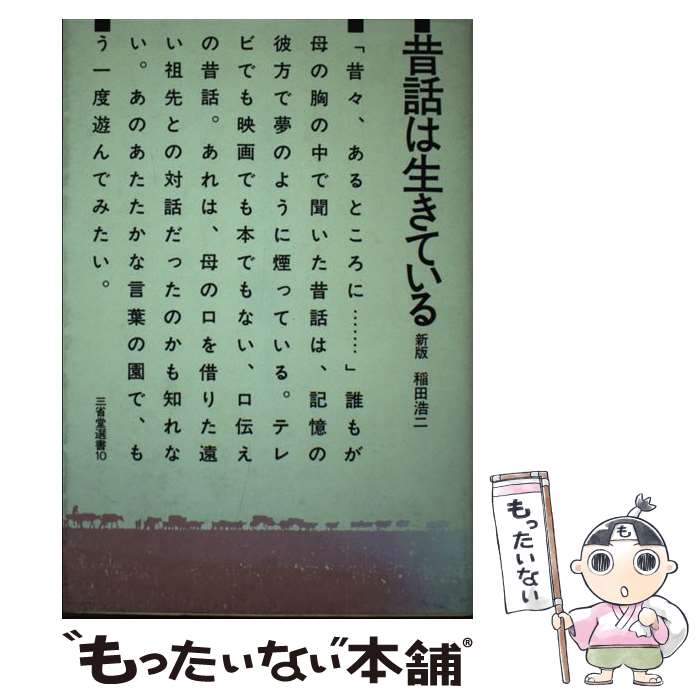 昔話は生きている
新版 稲田浩二
「昔々、あるところに……」誰もが
母の胸の中で聞いた昔話は、記憶の
彼方で夢のように煙っている。テレ
ビでも映画でも本でもない、口伝え
の昔話。あれは、母の口を借りた遠
い祖先との対話だったのかも知れな
い。あのあたたかな言葉の園で、も
う一度遊んでみたい。
三省堂選書10
もったいない
も
"もったいない"本舗®